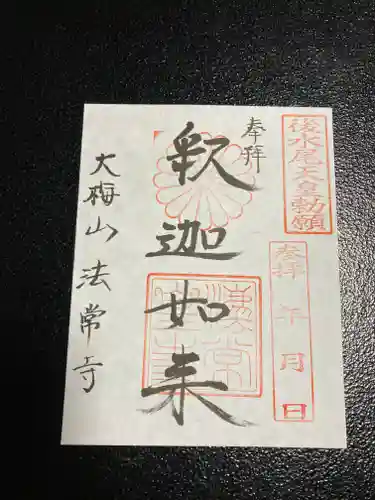 後水尾天皇勅願
参拝 年 月 日
奉拝
釈迦如来
大梅山 法常寺